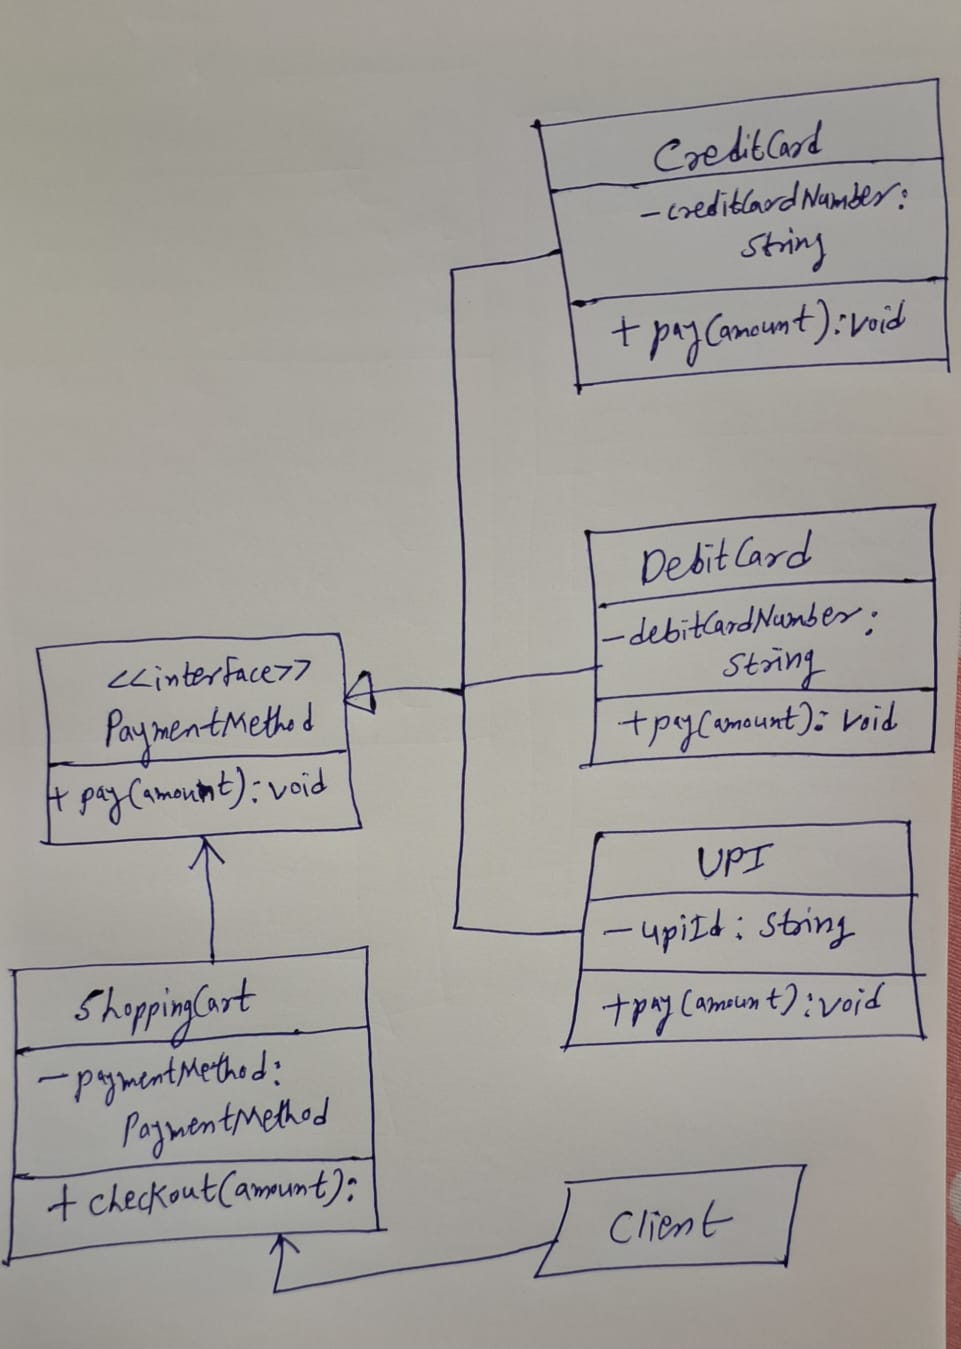 CreditCard
-creditCardNumber:
String
+ pay(amount):void
DebitCard
-debitCardNumber:
String
+pay(amount): void
<<interface>>
PaymentMethod
+ pay(amount): void
UPI
-upiId: String
+pay(amount):void
ShoppingCart
-paymentMethod:
PaymentMethod
+ checkout(amount):
Client